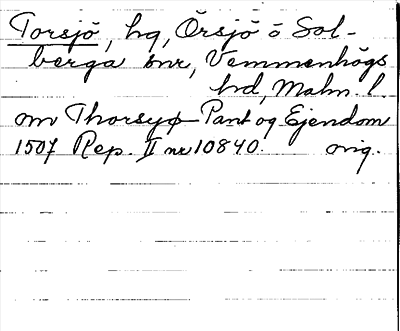 Torsjö, hg, Örsjö o Sol-
berga snr, Vemmenhögs
hd, Malm. l.
om Thorsyø Pant og Ejendom
1507 Rep. II nr 10840. orig.